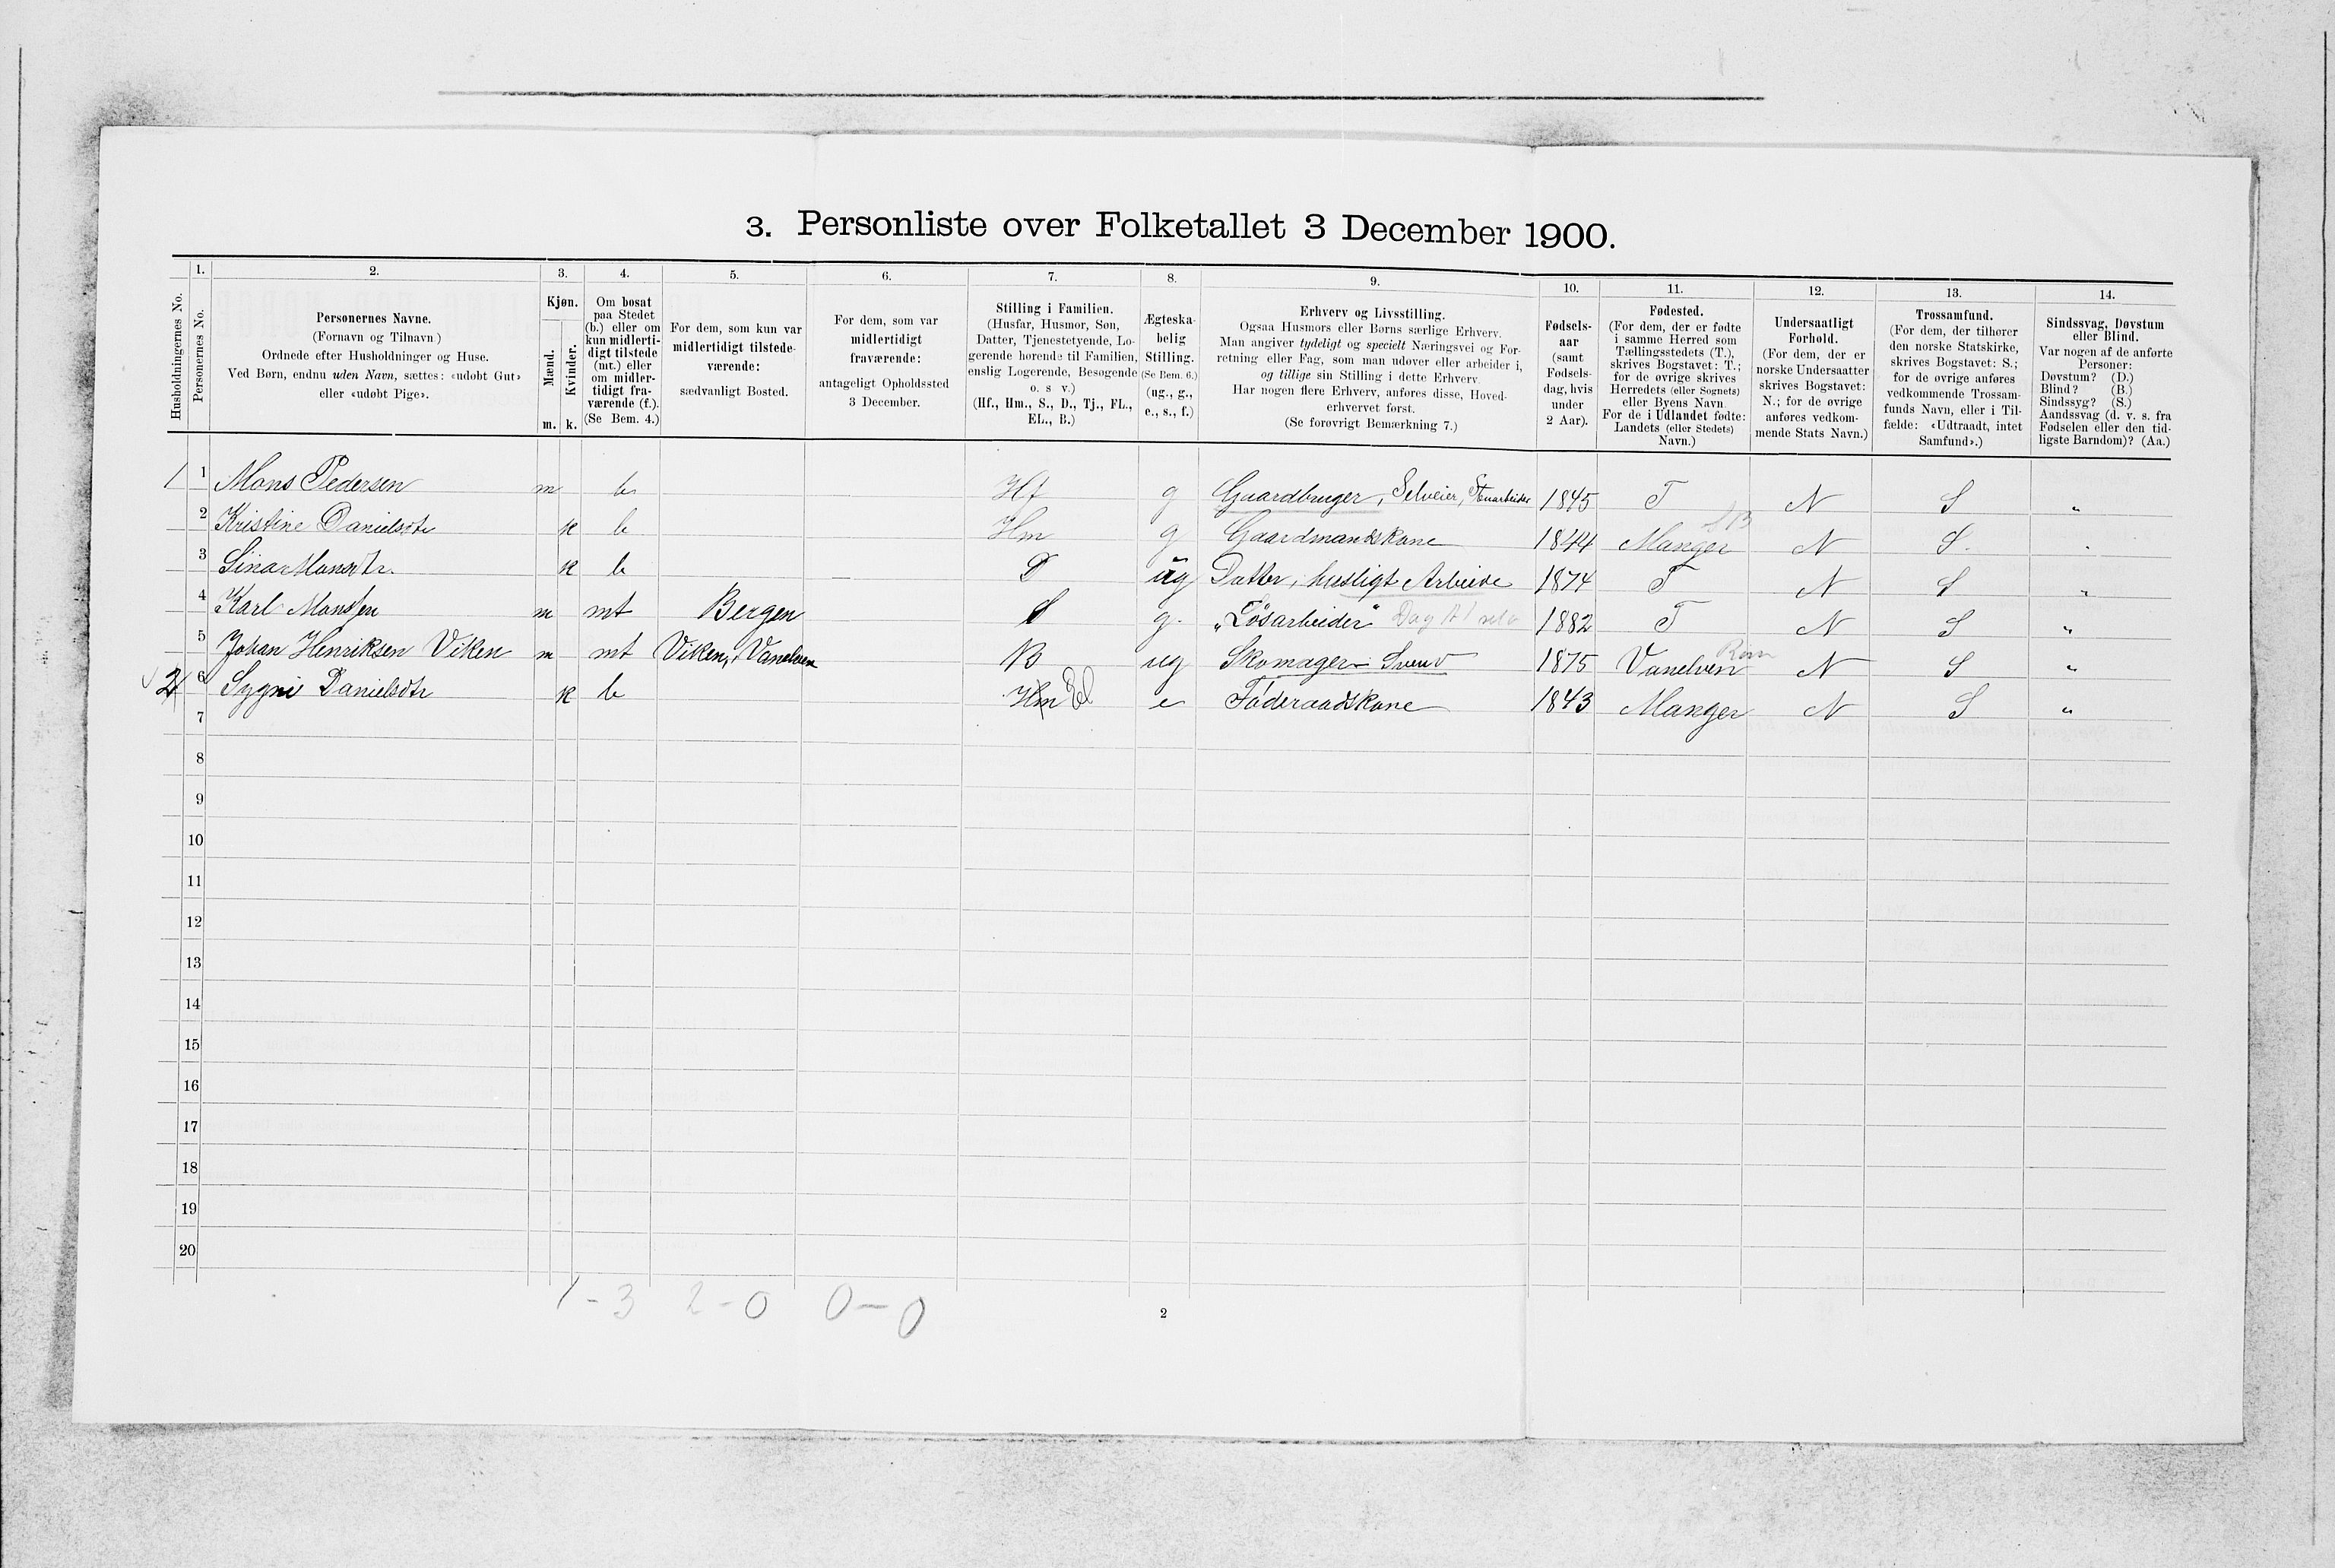 3. Personliste over Folketallet 3 December 1900.
1. 2. 3. 4. 5. 6. 7. 8. 9. 10. 11. 12. 13. 14.
Husholdningernes No.
Personernes No.
Personernes Navne.
(Fornavn og Tilnavn)
Ordnede efter Husholdninger og Huse.
Ved Børn, endnu uden Navn, sættes: «udøbt Gut»
eller «udøbt Pige».
Kjøn.
Mænd.
Kvinder.
m. k.
Om bosat
paa Stedet
(b.) eller om
kun midlerti-
digt tilstede
(mt.) eller
om midler-
tidigt fra-
værende (f.).
(Se Bem. 4.)
For dem, som kun var
midlertidigt tilstede-
værende:
sædvanligt Bosted.
For dem, som var
midlertidigt
fraværende:
antageligt Opholdssted
3 December.
Stilling i Familien.
(Husfar, Husmor, Søn,
Datter, Tjenestetyende, Lo-
gerende hørende til Familien,
enslig Logerende, Besøgende
o. s v.)
(Hf., Hm., S., D., Tj., FL.,
EL., B.)
Ægteska-
belig
Stilling.
(Se Bem. 6.)
(ug., g.,
e., s., f.)
Erhverv og Livsstilling.
Ogsaa Husmors eller Børns særlige Erhverv.
Man angiver tydeligt og specielt Næringsvei og For-
retning eller Fag, som man udøver eller arbeider i,
og tillige sin Stilling i dette Erhverv.
Har nogen flere Erhverv, anføres disse, Hoved-
erhvervet først.
(Se forøvrigt Bemærkning 7.)
Fødsels-
aar
(samt
Fødsels-
dag, hvis
under
2 Aar).
Fødested.
(For dem, der er fødte
i samme Herred som
Tællingsstedets (T.),
skrives Bogstavet: T.;
for de øvrige skrives
Herredets (eller Sognets)
eller Byens Navn.
For de i Udlandet fødte:
Landets (eller Stedets)
Navn.)
Undersaatligt
Forhold.
(For dem, der er
norske Undersaatter
skrives Bogstavet:
N.; for de øvrige
anføres vedkom-
mende Stats Navn.)
Trossamfund.
(For dem, der tilhører
den norske Statskirke,
skrives Bogstavet: S.;
for de øvrige anføres
vedkommende Trossam-
funds Navn, eller i Til-
fælde: «Udtraadt, intet
Samfund».)
Sindssvag, Døvstum
eller Blind.
Var nogen af de anførte
Personer:
Døvstum? (D.)
Blind? (B.)
Sindssyg? (S.)
Aandssvag (d. v. s. fra
Fødselen eller den tid-
ligste Barndom)? (Aa.)
1 1 Mons Pedersen m b Hf g Gaardbruger, Selveier, Stenarbeider 1845 T N S "
2 Kristine Danielsdtr k b Hm g Gaardmandskone 1844 Manger N S. "
3 Sina Monsdtr. k b D ug Datter, husligt Arbeide 1874 T N S "
4 Karl Monsen m mt Bergen S g. "Løsarbeider" 1882 T N S "
5 Johan Henriksen Viken m mt Viken, Vanelven B ug Skomager-Svend 1875 Vanelven Rom N S "
2 6 Sygni Danielsdtr k b Hm El e Føderaadskone 1843 Manger N S "
7
8
9
10
11
12
13
14
15
16
17
18
19
20
1-3 2-0 0-0
2